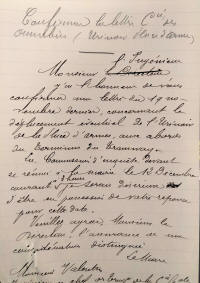 Confirmer la lettre Cie des
Omnibus (Urinoir Place d'armes)
Monsieur l'Ingénieur
J'ai l'honneur de vous
confirmer ma lettre du 19 no-
vembre dernier, concernant le
déplacement éventuel de l'Urinoir
de la Place d'armes, aux abords
du Terminus du Tramway.
La Commission d'enquête devant
se réunir à la mairie le 13 Décembre
courant, je serais désireux
d'être en possession de votre réponse
pour cette date.
Veuillez agréer, Monsieur le
Directeur, l'assurance de ma
considération distinguée
Le Maire
Monsieur